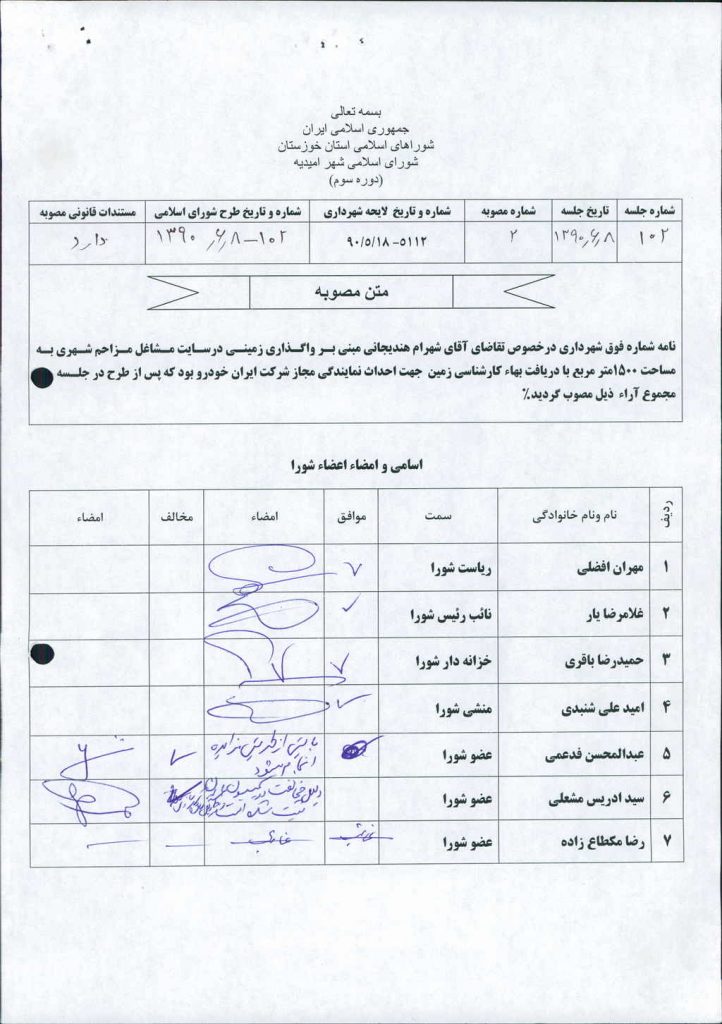 بسمه تعالی
جمهوری اسلامی ایران
شوراهای اسلامی استان خوزستان
شورای اسلامی شهر امیدیه
(دوره سوم)
شماره جلسه تاریخ جلسه شماره مصوبه شماره و تاریخ لایحه شهرداری شماره و تاریخ طرح شورای اسلامی مستندات قانونی مصوبه
۱۰۲ ۱۳۹۰/۶/۸ ۲ ۵۱۱۲-۹۰/۵/۱۸ ۱۰۲-۱۳۹۰/۶/۸ دارد
متن مصوبه
نامه شماره فوق شهرداری درخصوص تقاضای آقای شهرام هندیجانی مبنی بر واگذاری زمینی درسایت مشاغل مزاحم شهری به
مساحت ۱۵۰۰متر مربع با دریافت بهاء کارشناسی زمین جهت احداث نمایندگی مجاز شرکت ایران خودرو بود که پس از طرح در جلسه
مجموع آراء ذیل مصوب گردید.٪
اسامی و امضاء اعضاء شورا
ردیف نام ونام خانوادگی سمت موافق امضاء مخالف امضاء
۱ مهران افضلی ریاست شورا ✓
۲ غلامرضا یار نائب رئیس شورا ✓
۳ حمیدرضا باقری خزانه دار شورا ✓
۴ امید علی شنبدی منشی شورا ✓
۵ عبدالمحسن فدعمی عضو شورا بایستی از طریق مزایده ✓
انجام میشود
۶ سید ادریس مشعلی عضو شورا دلیل مخالفت در کمیسیون
ثبت شده است
۷ رضا مکطاع زاده عضو شورا غائب غائب